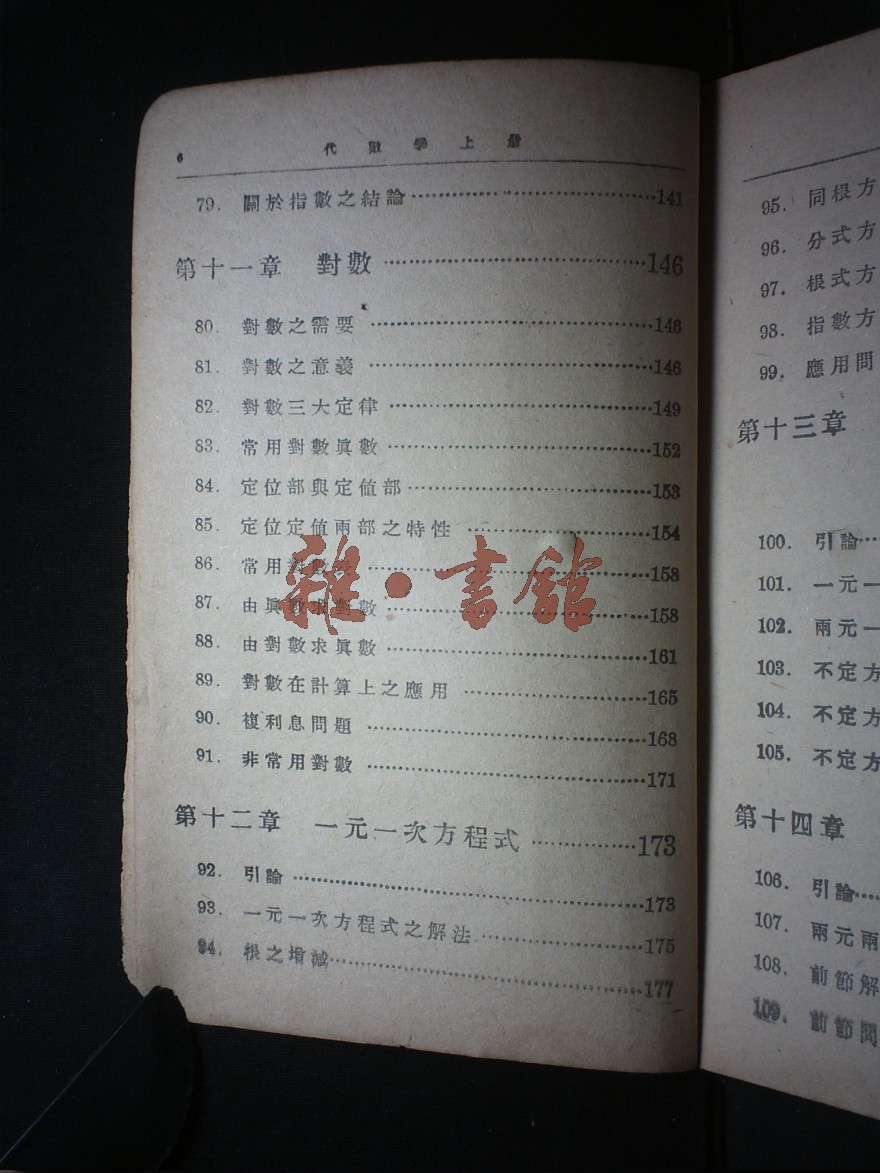 6 代數學上册
79. 關於指數之結論……141
第十一章 對數……146
80. 對數之需要……146
81. 對數之意義……146
82. 對數三大定律……149
83. 常用對數眞數……152
84. 定位部與定値部……153
85. 定位定値兩部之特性……154
86. 常用對數……158
87. 由眞數求對數……158
88. 由對數求眞數……161
89. 對數在計算上之應用……165
90. 複利息問題……168
91. 非常用對數……171
第十二章 一元一次方程式……173
92. 引論……173
93. 一元一次方程式之解法……175
94. 根之增減……177
雜·書館
95. 同根方
96. 分式方
97. 根式方
98. 指數方
99. 應用問
第十三章
100. 引論…
101. 一元一
102. 兩元一
103. 不定方
104. 不定方
105. 不定方
第十四章
106. 引論…
107. 兩元兩
108. 前節解
109. 前節